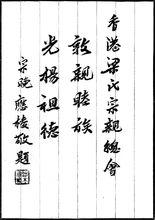 香港梁氏宗親總會
敦親睦族
光楊祖德
宗晚應棱敬題